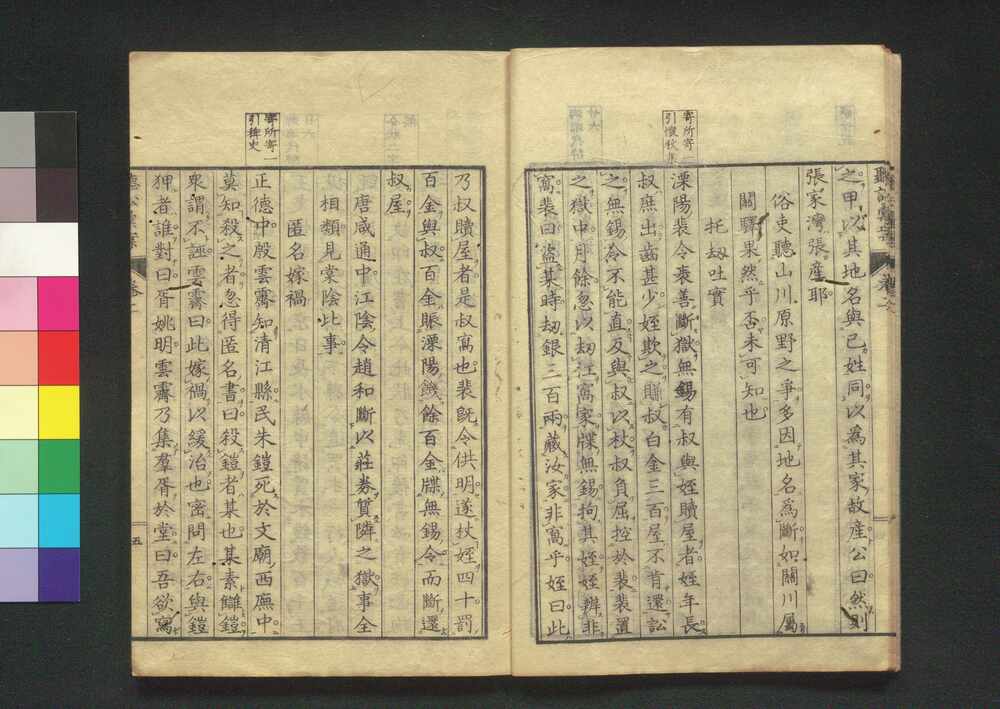 之甲以其地名與己姓同以為其家故産公曰然則
張家灣張産耶
俗吏聽山川原野之爭多因地名爲斷如關川屬
關驛果然乎否未可知也
托刼吐實
寄所寄一
引懷秋集
溧陽裴令袁善斷獄無錫有叔與姪贖屋者姪年長
叔庶出齒甚少姪欺之賺叔白金三百屋不肯還訟
之無錫令不能直反與叔以杖叔負屈控於裴裴置
之獄中月餘忽以刼江窩家牒無錫拘其姪姪辨非
窩裴曰盜某時刼銀三百兩藏汝家非窩乎姪曰此
乃叔贖屋者是叔窩也裴既令供明遂杖姪四十罰
百金與叔百金賑溧陽饑餘百金牒無錫令而斷還
叔屋
唐咸通中江陰令趙和斷以莊券質隣之獄事全
相類見棠陰比事
匿名嫁禍
寄所寄一
引稗史
正德中殷雲霽知清江縣民朱鎧死於文廟西廡中
莫知殺之者忽得匿名書曰殺鎧者某也某素讎鎧
衆謂不誣雲霽曰此嫁禍以緩治也密問左右與鎧
狎者誰對曰胥姚明雲霽乃集羣胥於堂曰吾欲寫
五